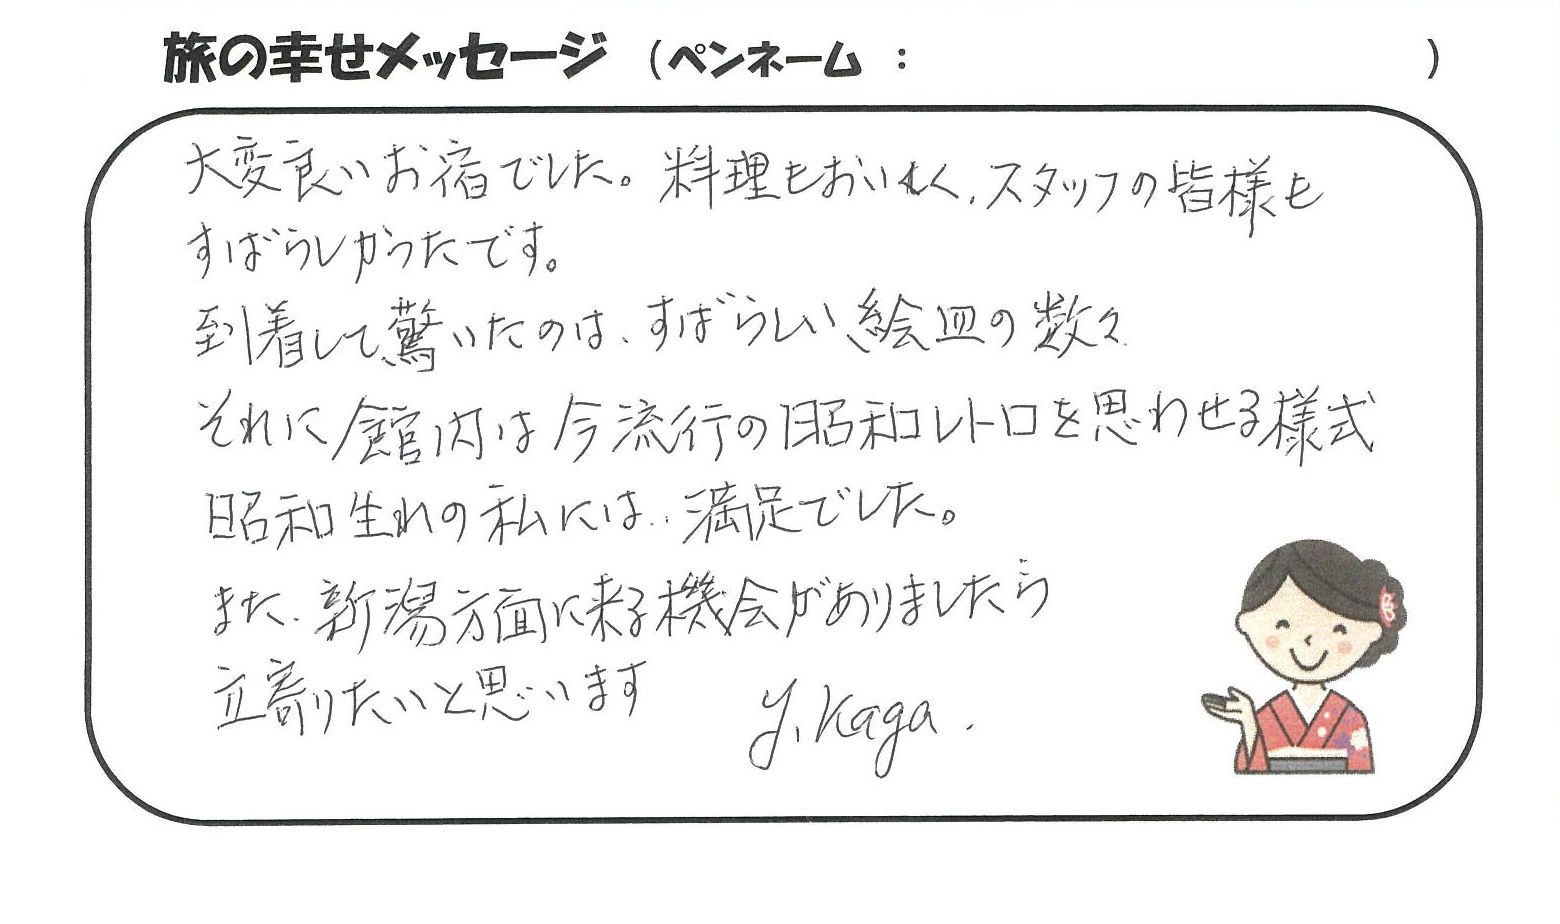 旅の幸せメッセージ (ペンネーム : )
大変良いお宿でした。料理もおいしく、スタッフの皆様も
すばらしかったです。
到着して、驚いたのは、すばらしい絵皿の数々
それに館内は今流行の昭和レトロを思わせる様式
昭和生れの私には、満足でした。
また、新潟方面に来る機会がありましたら
立寄りたいと思います
Y. Kaga.